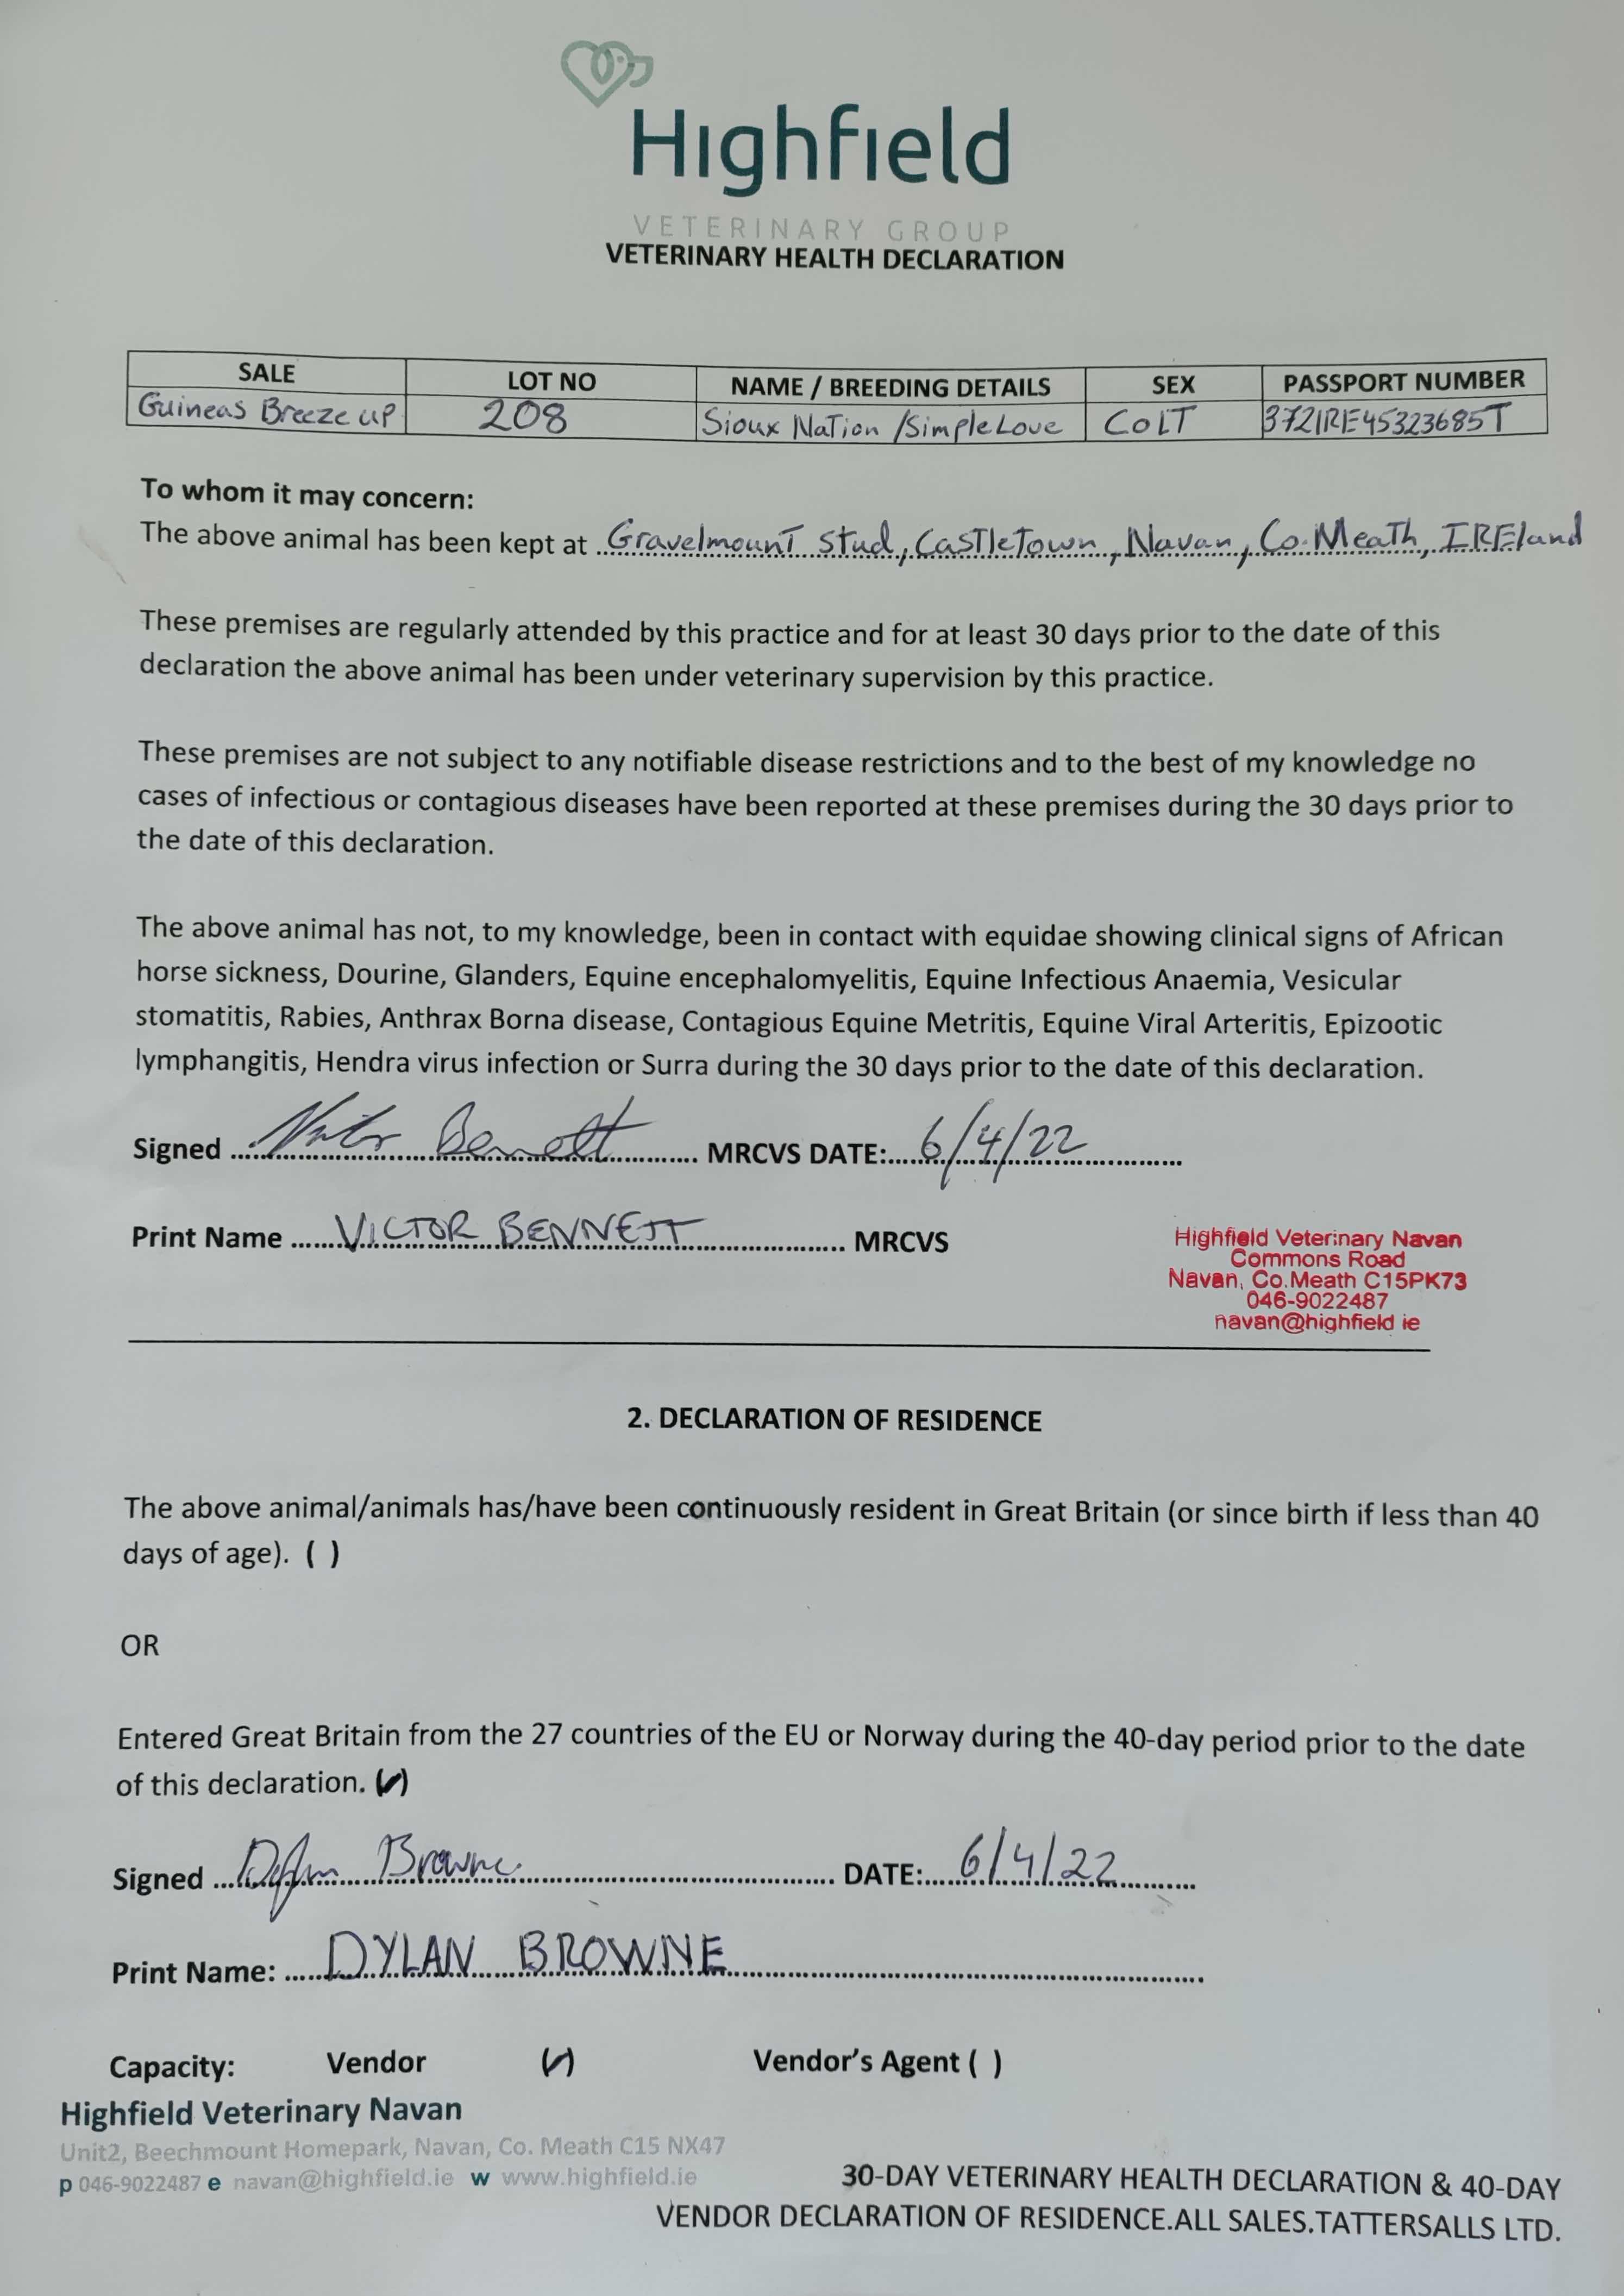 Highfield
VETERINARY GROUP
VETERINARY HEALTH DECLARATION
SALE LOT NO NAME / BREEDING DETAILS SEX PASSPORT NUMBER
Guineas Breeze up 208 Sioux Nation / Simple Love COLT 372IRE45323685T
To whom it may concern:
The above animal has been kept at Gravelmount Stud, Castletown, Navan, Co. Meath, IREland
These premises are regularly attended by this practice and for at least 30 days prior to the date of this
declaration the above animal has been under veterinary supervision by this practice.
These premises are not subject to any notifiable disease restrictions and to the best of my knowledge no
cases of infectious or contagious diseases have been reported at these premises during the 30 days prior to
the date of this declaration.
The above animal has not, to my knowledge, been in contact with equidae showing clinical signs of African
horse sickness, Dourine, Glanders, Equine encephalomyelitis, Equine Infectious Anaemia, Vesicular
stomatitis, Rabies, Anthrax Borna disease, Contagious Equine Metritis, Equine Viral Arteritis, Epizootic
lymphangitis, Hendra virus infection or Surra during the 30 days prior to the date of this declaration.
Signed Victor Bennett MRCVS DATE: 6/4/22
Print Name VICTOR BENNETT MRCVS
Highfield Veterinary Navan
Commons Road
Navan, Co.Meath C15PK73
046-9022487
navan@highfield ie
2. DECLARATION OF RESIDENCE
The above animal/animals has/have been continuously resident in Great Britain (or since birth if less than 40
days of age). ( )
OR
Entered Great Britain from the 27 countries of the EU or Norway during the 40-day period prior to the date
of this declaration. (✓)
Signed Dylan Browne DATE: 6/4/22
Print Name: DYLAN BROWNE
Capacity: Vendor (✓) Vendor's Agent ( )
Highfield Veterinary Navan
Unit2, Beechmount Homepark, Navan, Co. Meath C15 NX47
p 046-9022487 e navan@highfield.ie w www.highfield.ie
30-DAY VETERINARY HEALTH DECLARATION & 40-DAY
VENDOR DECLARATION OF RESIDENCE.ALL SALES.TATTERSALLS LTD.